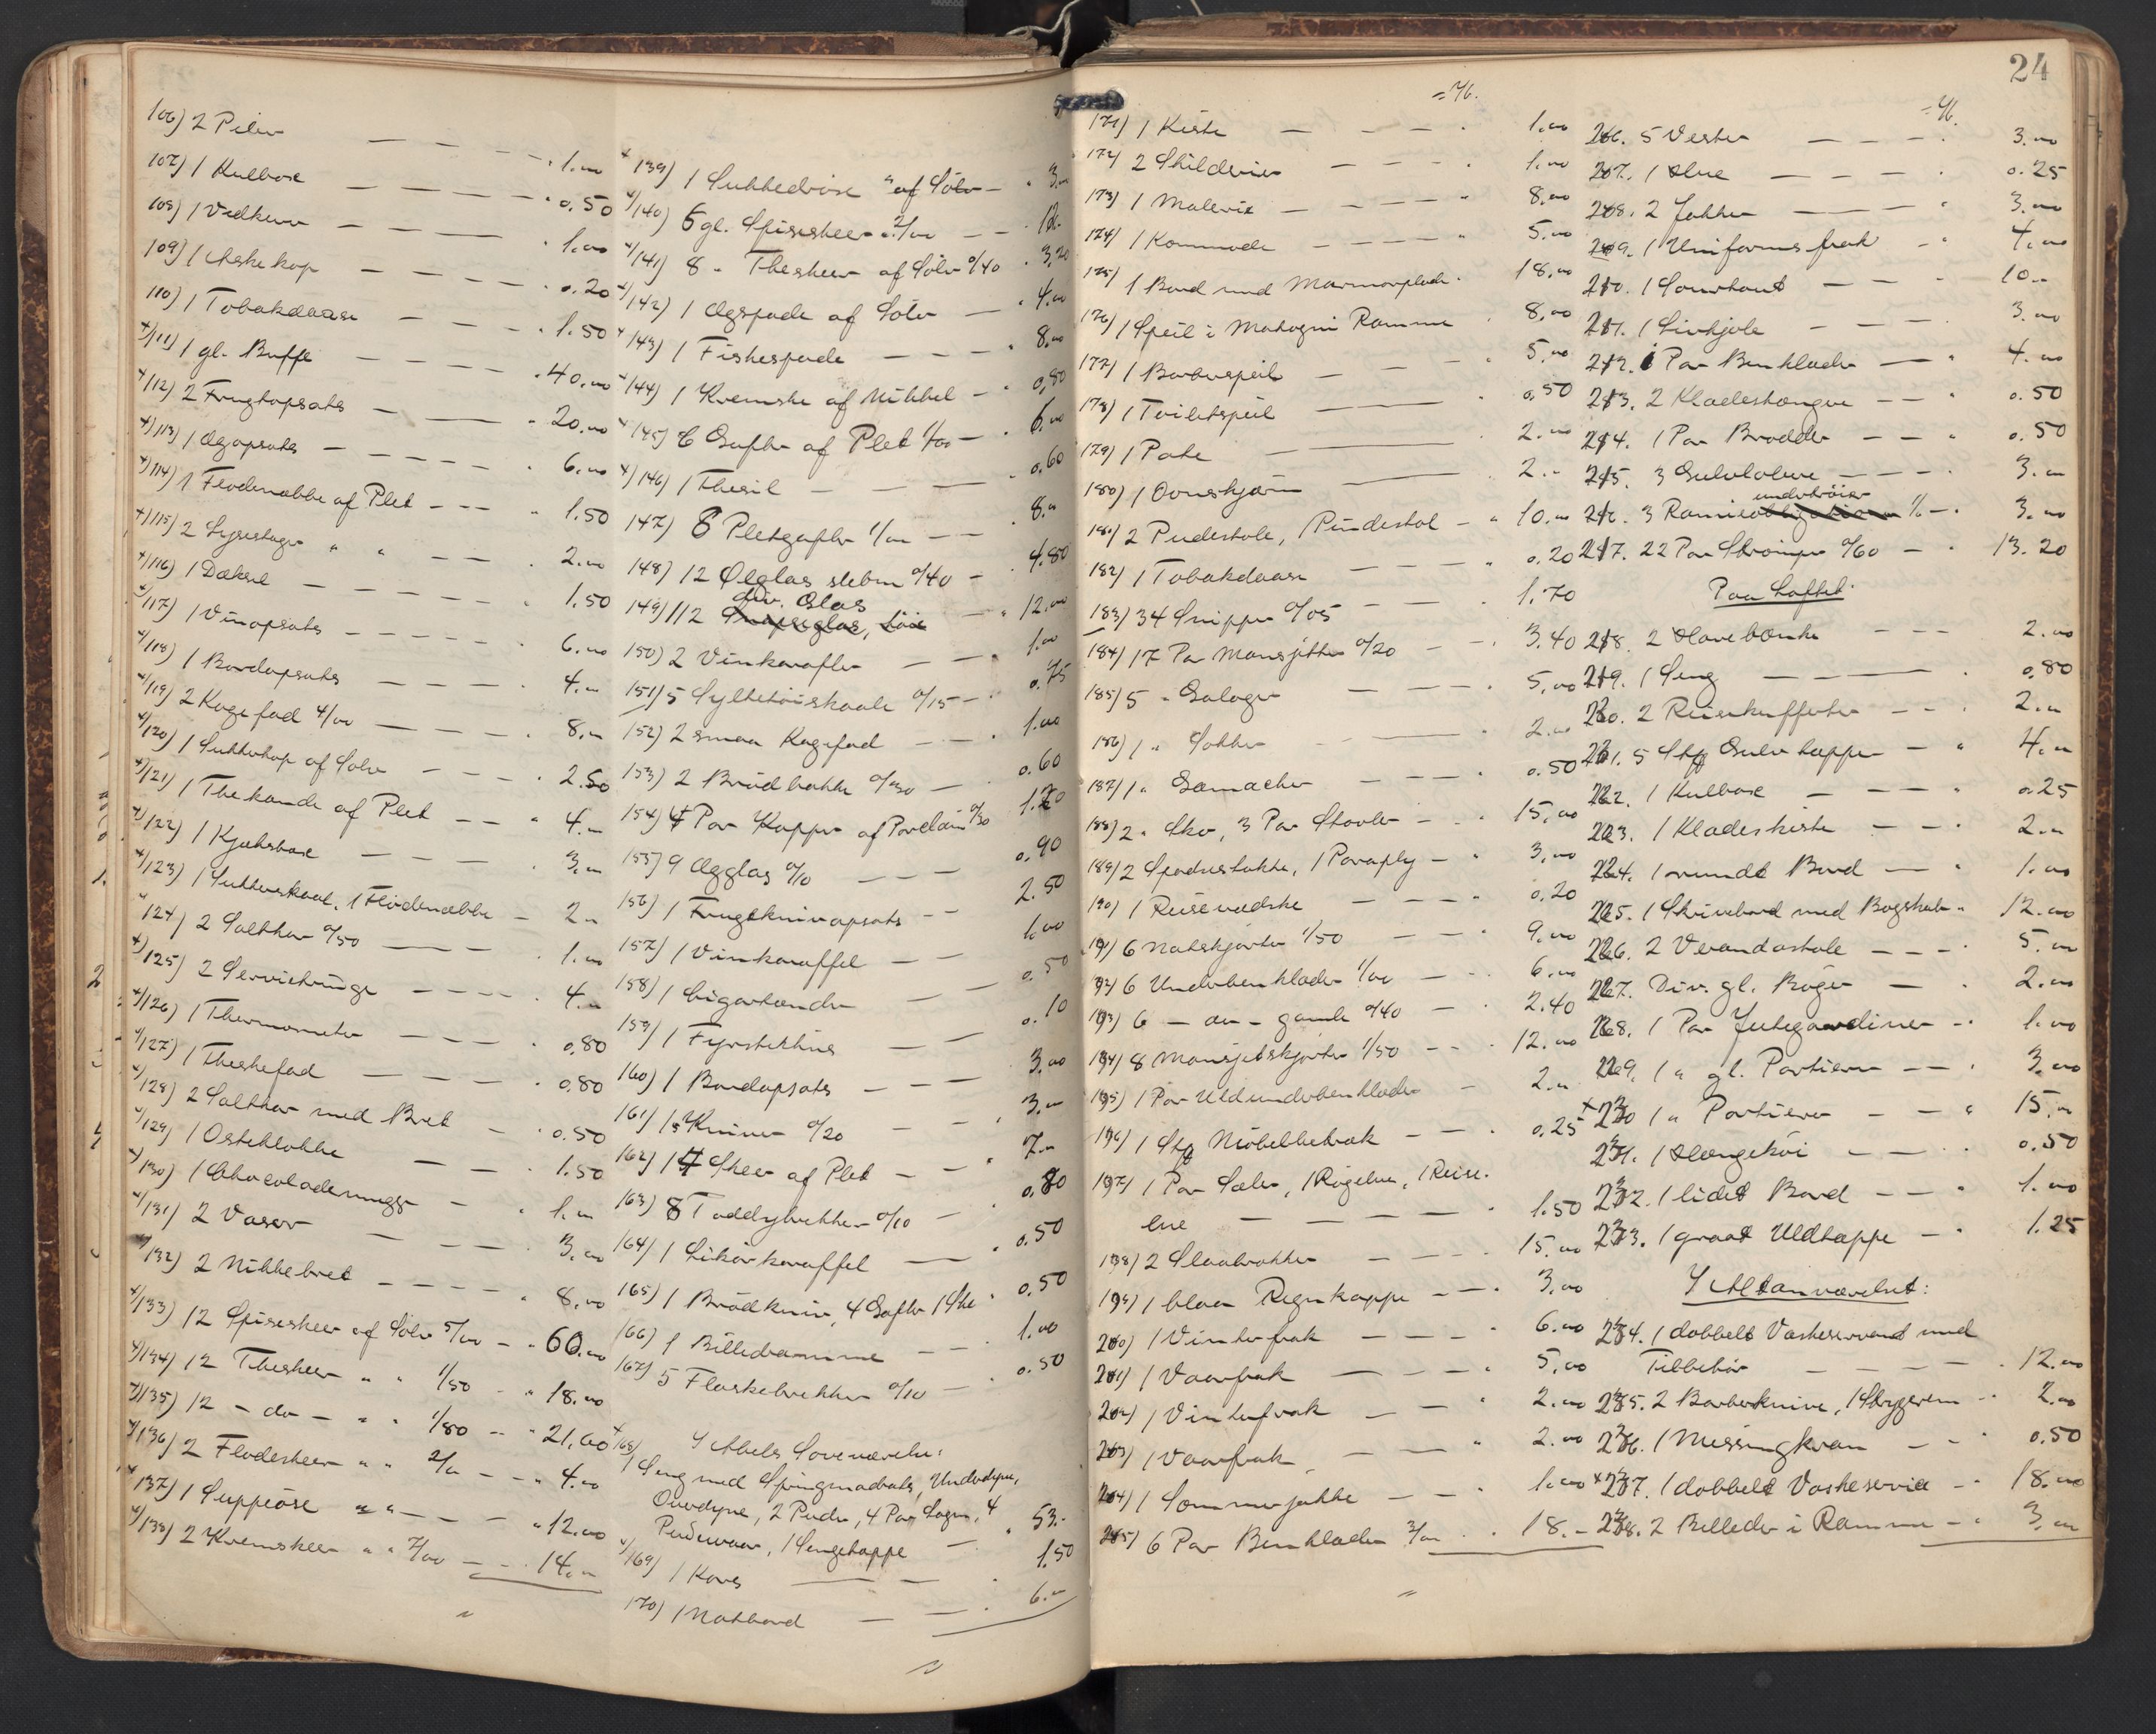 106) 2 Piler — 1.00
107) 1 Kulboxe — 0.50
108) 1 Vedkurv — 1.00
109) 1 Askekop — 0.20
110) 1 Tobakdaase — 1.50
+/111) 1 gl. Buffe — 40.00
+/112) 2 Frugtopsats — 20.00
+/113) 1 Ægopsats — 6.00
+/114) 1 Flødenæbbe af Plet — 1.50
+/115) 2 Lysestager " " — 2.00
+/116) 1 Dæksel — 1.50
+/117) 1 Vinopsats — 6.00
+/118) 1 Bordopsats — 4.00
+/119) 2 Kagefad 4/00 — 8.00
+/120) 1 Sukkerkop af Sølv — 2.50
+/121) 1 Thekande af Plet — 4.00
+/122) 1 Kjæksboxe — 3.00
+/123) 1 Sukkerskaal, 1 Flødenæbbe — 2.00
+/124) 2 Saltkar 0/50 — 1.00
+/125) 2 Servietringe — 4.00
+/126) 1 Thermometer — 0.80
+/127) 1 Theskefad — 0.80
+/128) 2 Saltkar med Bret — 0.50
+/129) 1 Osteklokke — 1.50
+/130) 1 Chocolademugge — 1.00
+/131) 2 Vaser — 3.00
+/132) 2 Nikkelbret — 8.00
+/133) 12 Spiseskeer af Sølv 5/00 — 60.00
+/134) 12 Theskeer " " 1/50 — 18.00
+/135) 12 – do – " " 1/80 — 21.60
+/136) 2 Flødeskeer " " 2/00 — 4.00
+/137) 1 Suppeøse " " — 12.00
+/138) 2 Kremskeer " " 7/00 — 14.00
+ 139) 1 Sukkedrøse " af Sølv — 3.00
+/140) 6 gl. Spiseskeer a 2/00 — 12.
+/141) 8 " Theskeer af Sølv 0/40 — 3.20
+/142) 1 Ægspade af Sølv — 4.00
+ 143) 1 Fiskespade — 8.00
+ 144) 1 Kremske af Nikkel — 0.80
+ 145) 6 Gafler af Plet 1/00 — 6.00
+/146) 1 Thesil — 0.60
147) 8 Pletgafler 1/00 — 8.00
148) 12 Ølglas slebne 0/40 — 4.80
div. Glas
149) 112 Snapseglas, — 12.00
150) 2 Vinkarafler — 1.00
151) 5 Syltetøiskaale 0/15 — 0.75
152) 2 smaa Kagefad — 1.00
153) 2 Brødbakke 0/30 — 0.60
154) 4 Par Kopper af Porclæin 0/30 1.20
155) 9 Ægglas 0/10 — 0.90
156) 1 Frugtknivopsats — 2.50
157) 1 Vinkaraffel — 1.00
158) 1 Cigartænder — 0.50
159) 1 Fyrstikhus — 0.10
160) 1 Bordopsats — 3.00
161) 15 Kniver 0/20 — 3.00
162) 14 Skeer af Plet — 7.00
163) 8 Toddybrikker 0/10 — 0.80
164) 1 Likørkaraffel — 0.50
165) 1 Brødkniv, 4 Gafler 1 Ske 0.50
166) 1 Billedramme — 1.00
167) 5 Flaskebrikker 0/10 — 0.50
I Abels Soveværelse:
+168) 1 Seng med Springmadrats, Underdyne,
Overdyne, 2 Puder, 4 Par Lagen, 4
Pudevaar, 1 Sengetæppe — 53.-
+/169) 1 Kors — 1.50
170) 1 Natbord — 6.00
24
= 46.
171) 1 Kiste — 1.00
172) 2 Skilderier — 1.00
173) 1 Malerie — 8.00
174) 1 Kommode — 5.00
175) 1 Bord med Marmorplade 18.00
176) 1 Speil i Mahogni Ramme 8.00
177) 1 Barberspeil — 5.00
178) 1 Toiletspeil — 0.50
179) 1 Pate — 2.00
180) 1 Ovnskjærm — 2.-
181) 2 Pudestole, 1 Pindestol — 10.00
182) 1 Tobakdaase — 0.20
183) 34 Snipper 0/05 — 1.70
184) 17 Par Mansjetter 0/20 — 3.40
185) 5 " Galoger — 5.00
186) 1 " Sokker — 2.00
187) 1 " Gamacher — 0.50
188) 2 " Sko, 3 Par Støvler — 15.00
189) 2 Spadserstokke, 1 Paraply — 3.00
190) 1 Reisevædske — 0.20
191) 6 Natskjorter 1/50 — 9.00
192) 6 Underbenklæder 1/00 — 6.00
193) 6 – do – gamle 0/40 — 2.40
194) 8 Mansjetskjorter 1/50 — 12.00
195) 1 Par Uldunderbenklæder — 2.00
196) 1 Stk Møbelbetræk — 0.25
197) 1 Par Sæler, 1 Røgelue, 1 Reise-
lue — 1.50
198) 2 Slaabrokker — 15.00
199) 1 blaa Regnkappe — 3.00
200) 1 Vinterfrak — 6.00
201) 1 Vaarfrak — 5.00
202) 1 Vinterfrak — 2.00
203) 1 Vaarfrak — 2.00
204) 1 Sommerjakke — 1.00
205) 6 Par Benklæder 3/00 — 18.-
= 46.
206. 5 Vester — 3.00
207. 1 Hue — 0.25
208. 2 Jakker — 3.00
209. 1 Uniformsfrak — 4.00
210. 1 Sourtout — 10.-
211. 1 Livkjole — 3.00
212. 1 Par Benklæder — 4.00
213. 2 Klædeshængere — 0.50
214. 1 Par Brodder — 0.50
215. 3 Gulvløbere — 3.00
undertrøier
216. 3 Ramieobligationer 1/- 3.00
217. 22 Par Strømper 0/60 — 13.20
Paa Loftet:
218. 2 Havebænke — 2.00
219. 1 Seng — 0.80
220. 2 Reisekufferter — 2.00
221. 5 Stk Gulvtæpper — 4.00
222. 1 Kulboxe — 0.25
223. 1 Klædeskiste — 2.00
224. 1 rundt Bord — 1.00
225. 1 Skrivebord med Bogskab 12.00
226. 2 Verandastole — 5.00
227. Div. gl. Bøger — 2.00
228. 1 Par Jutegardiner — 1.00
229. 1 " gl. Portierer — 3.00
+ 230 1 " Portierer — 15.00
231. 1 Hængekøi — 0.50
232. 1 lidet Bord — 1.00
233. 1 graat Uldtæppe — 1.25
I Altanværelset:
234. 1 dobbelt Vaskeservant med
Tilbehør — 12.00
235. 2 Barberknive, 1 Strygerem 2.00
236. 1 Messingkran — 0.50
+ 237. 1 dobbelt Vaskeservice — 18.00
238. 2 Billeder i Ramme — 3.00